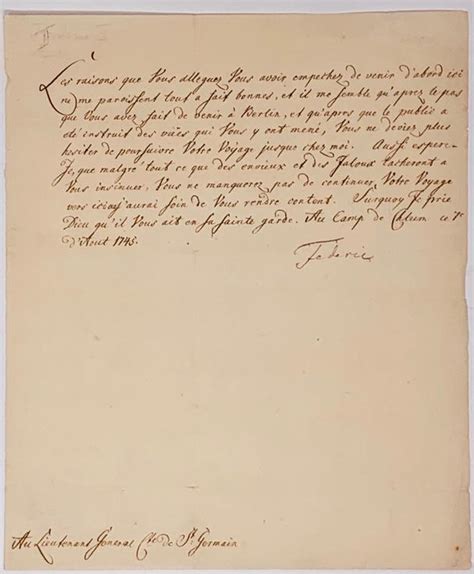 Les raisons que Vous alleguez Vous avoir empechez de venir d'abord ici
ne me paroissent tout a fait bonnes, et il me semble qu'apres le pas
que Vous avez fait de venir à Berlin, et qu'apres que le publiq a
eté instruit des vuës qui Vous y ont mené, Vous ne deviez plus
hesiter de poursuivre Votre Voyage jusque chez moi. Aussi espere-
Je, que malgré tout ce que des envieux et des Jaloux tacheront a
Vous insinuer, Vous ne manquerez pas de continuer Votre Voyage
vers ici; j'aurai soin de Vous rendre content. Surquoy Je prie
Dieu qu'il Vous ait en sa sainte garde. Au Camp de Clum ce
d'Aout 1745.
Federic
Au Lieutenant Général Cte de St. Germain